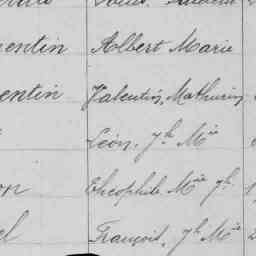 entin Albert Marie
entin Valentin, Mathurin
Léon, Jh Mie
on Théophile Mie Jh
el François, Jh Mie